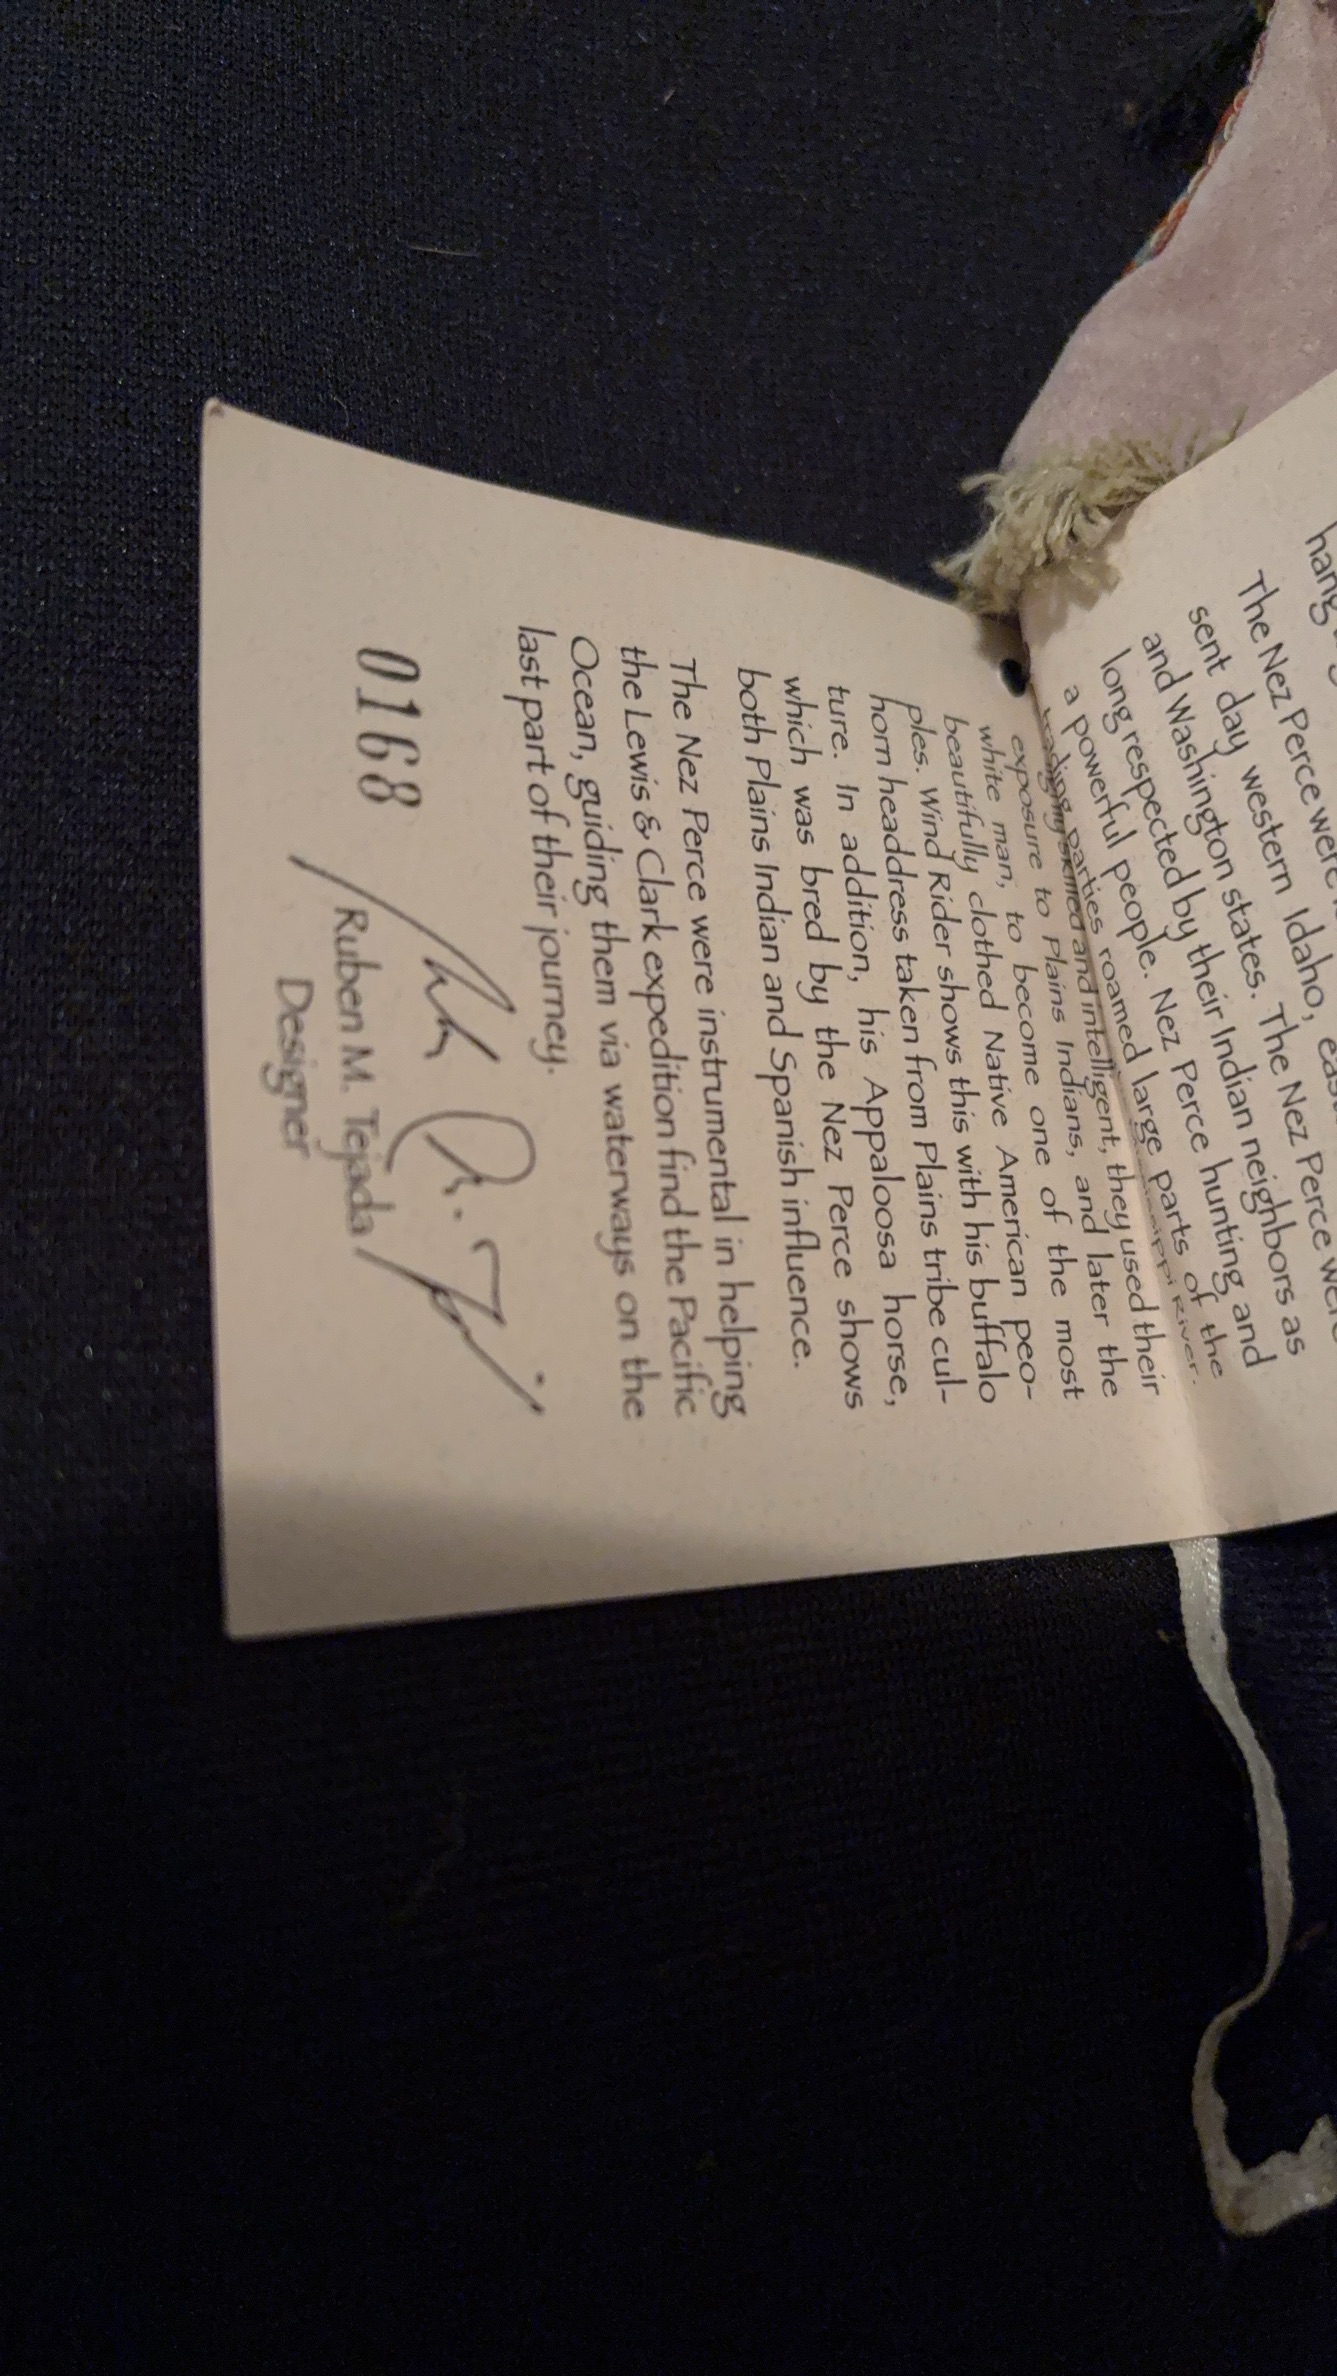 The Nez Perce were
sent day western Idaho,
and Washington states. The Nez Perce
long respected by their Indian neighbors as
a powerful people. Nez Perce hunting and
trading parties roamed large parts of the
River.
skilled and intelligent, they used their
exposure to Plains Indians, and later the
white man, to become one of the most
beautifully clothed Native American peo-
ples. Wind Rider shows this with his buffalo
horn headdress taken from Plains tribe cul-
ture. In addition, his Appaloosa horse,
which was bred by the Nez Perce shows
both Plains Indian and Spanish influence.
The Nez Perce were instrumental in helping
the Lewis & Clark expedition find the Pacific
Ocean, guiding them via waterways on the
last part of their journey.
0168
Ruben M. Tejada
Designer